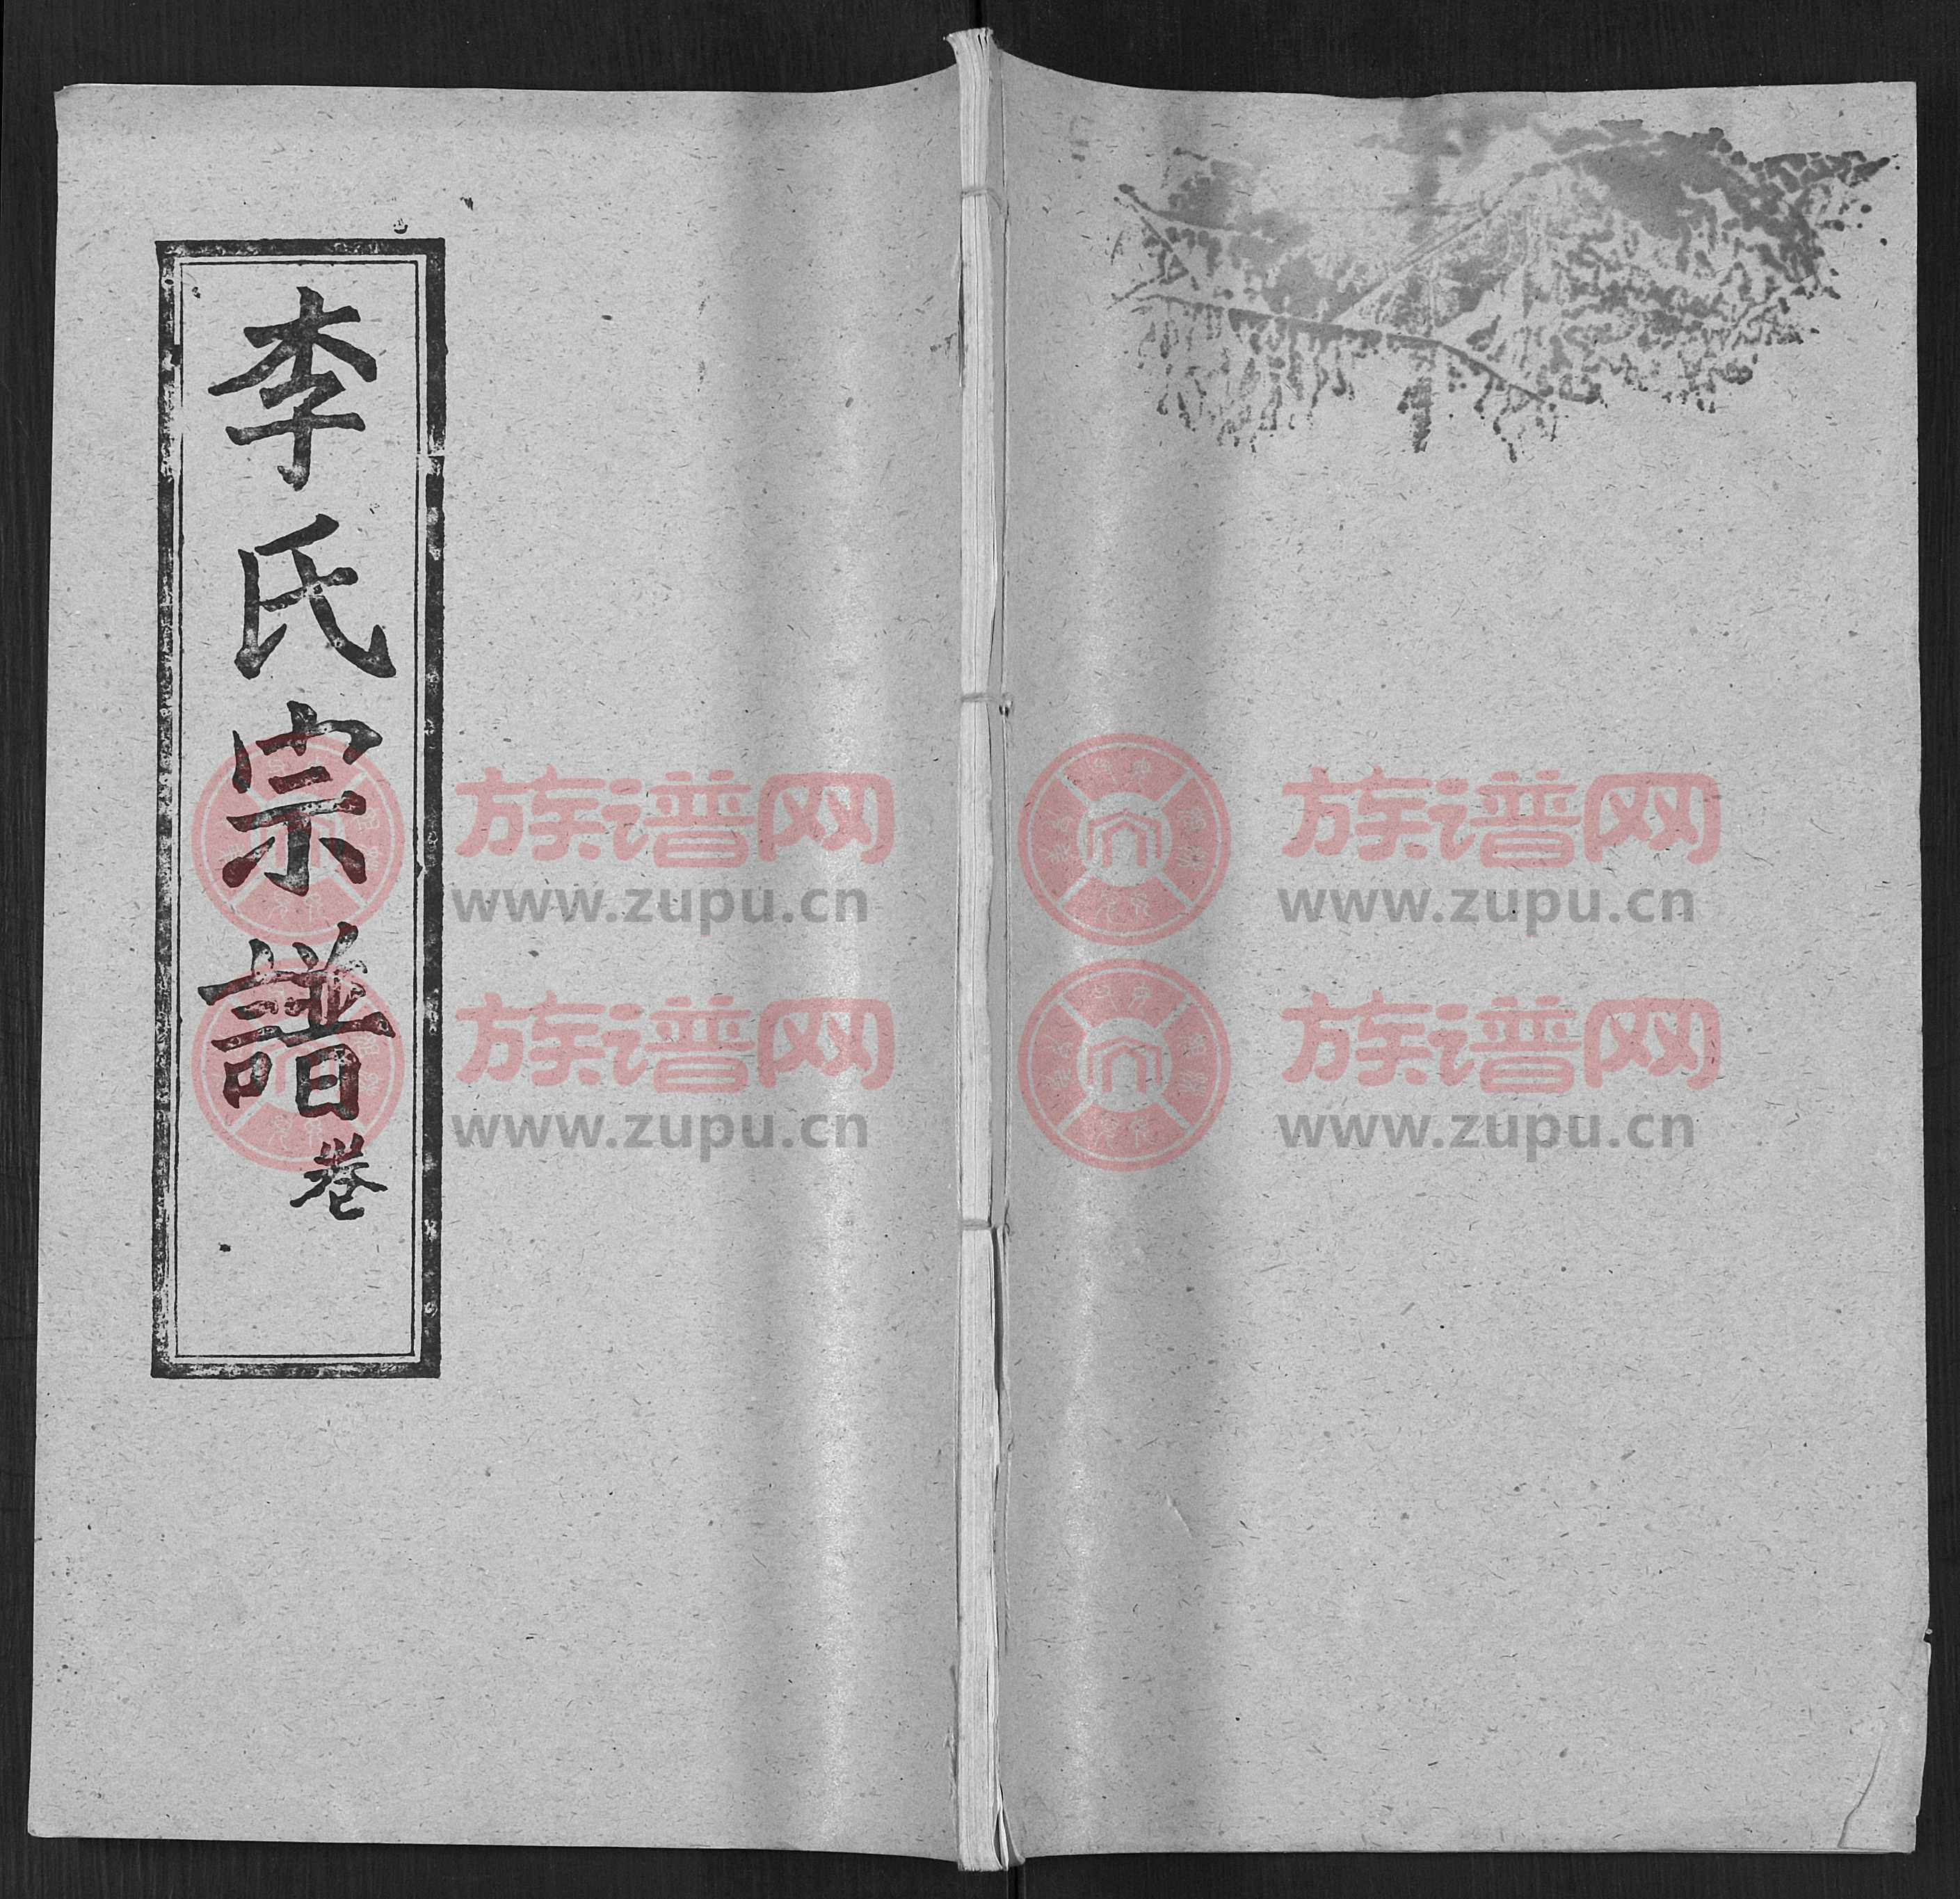 李氏宗譜卷
族谱网
www.zupu.cn
族谱网
www.zupu.cn
族谱网
www.zupu.cn
族谱网
www.zupu.cn